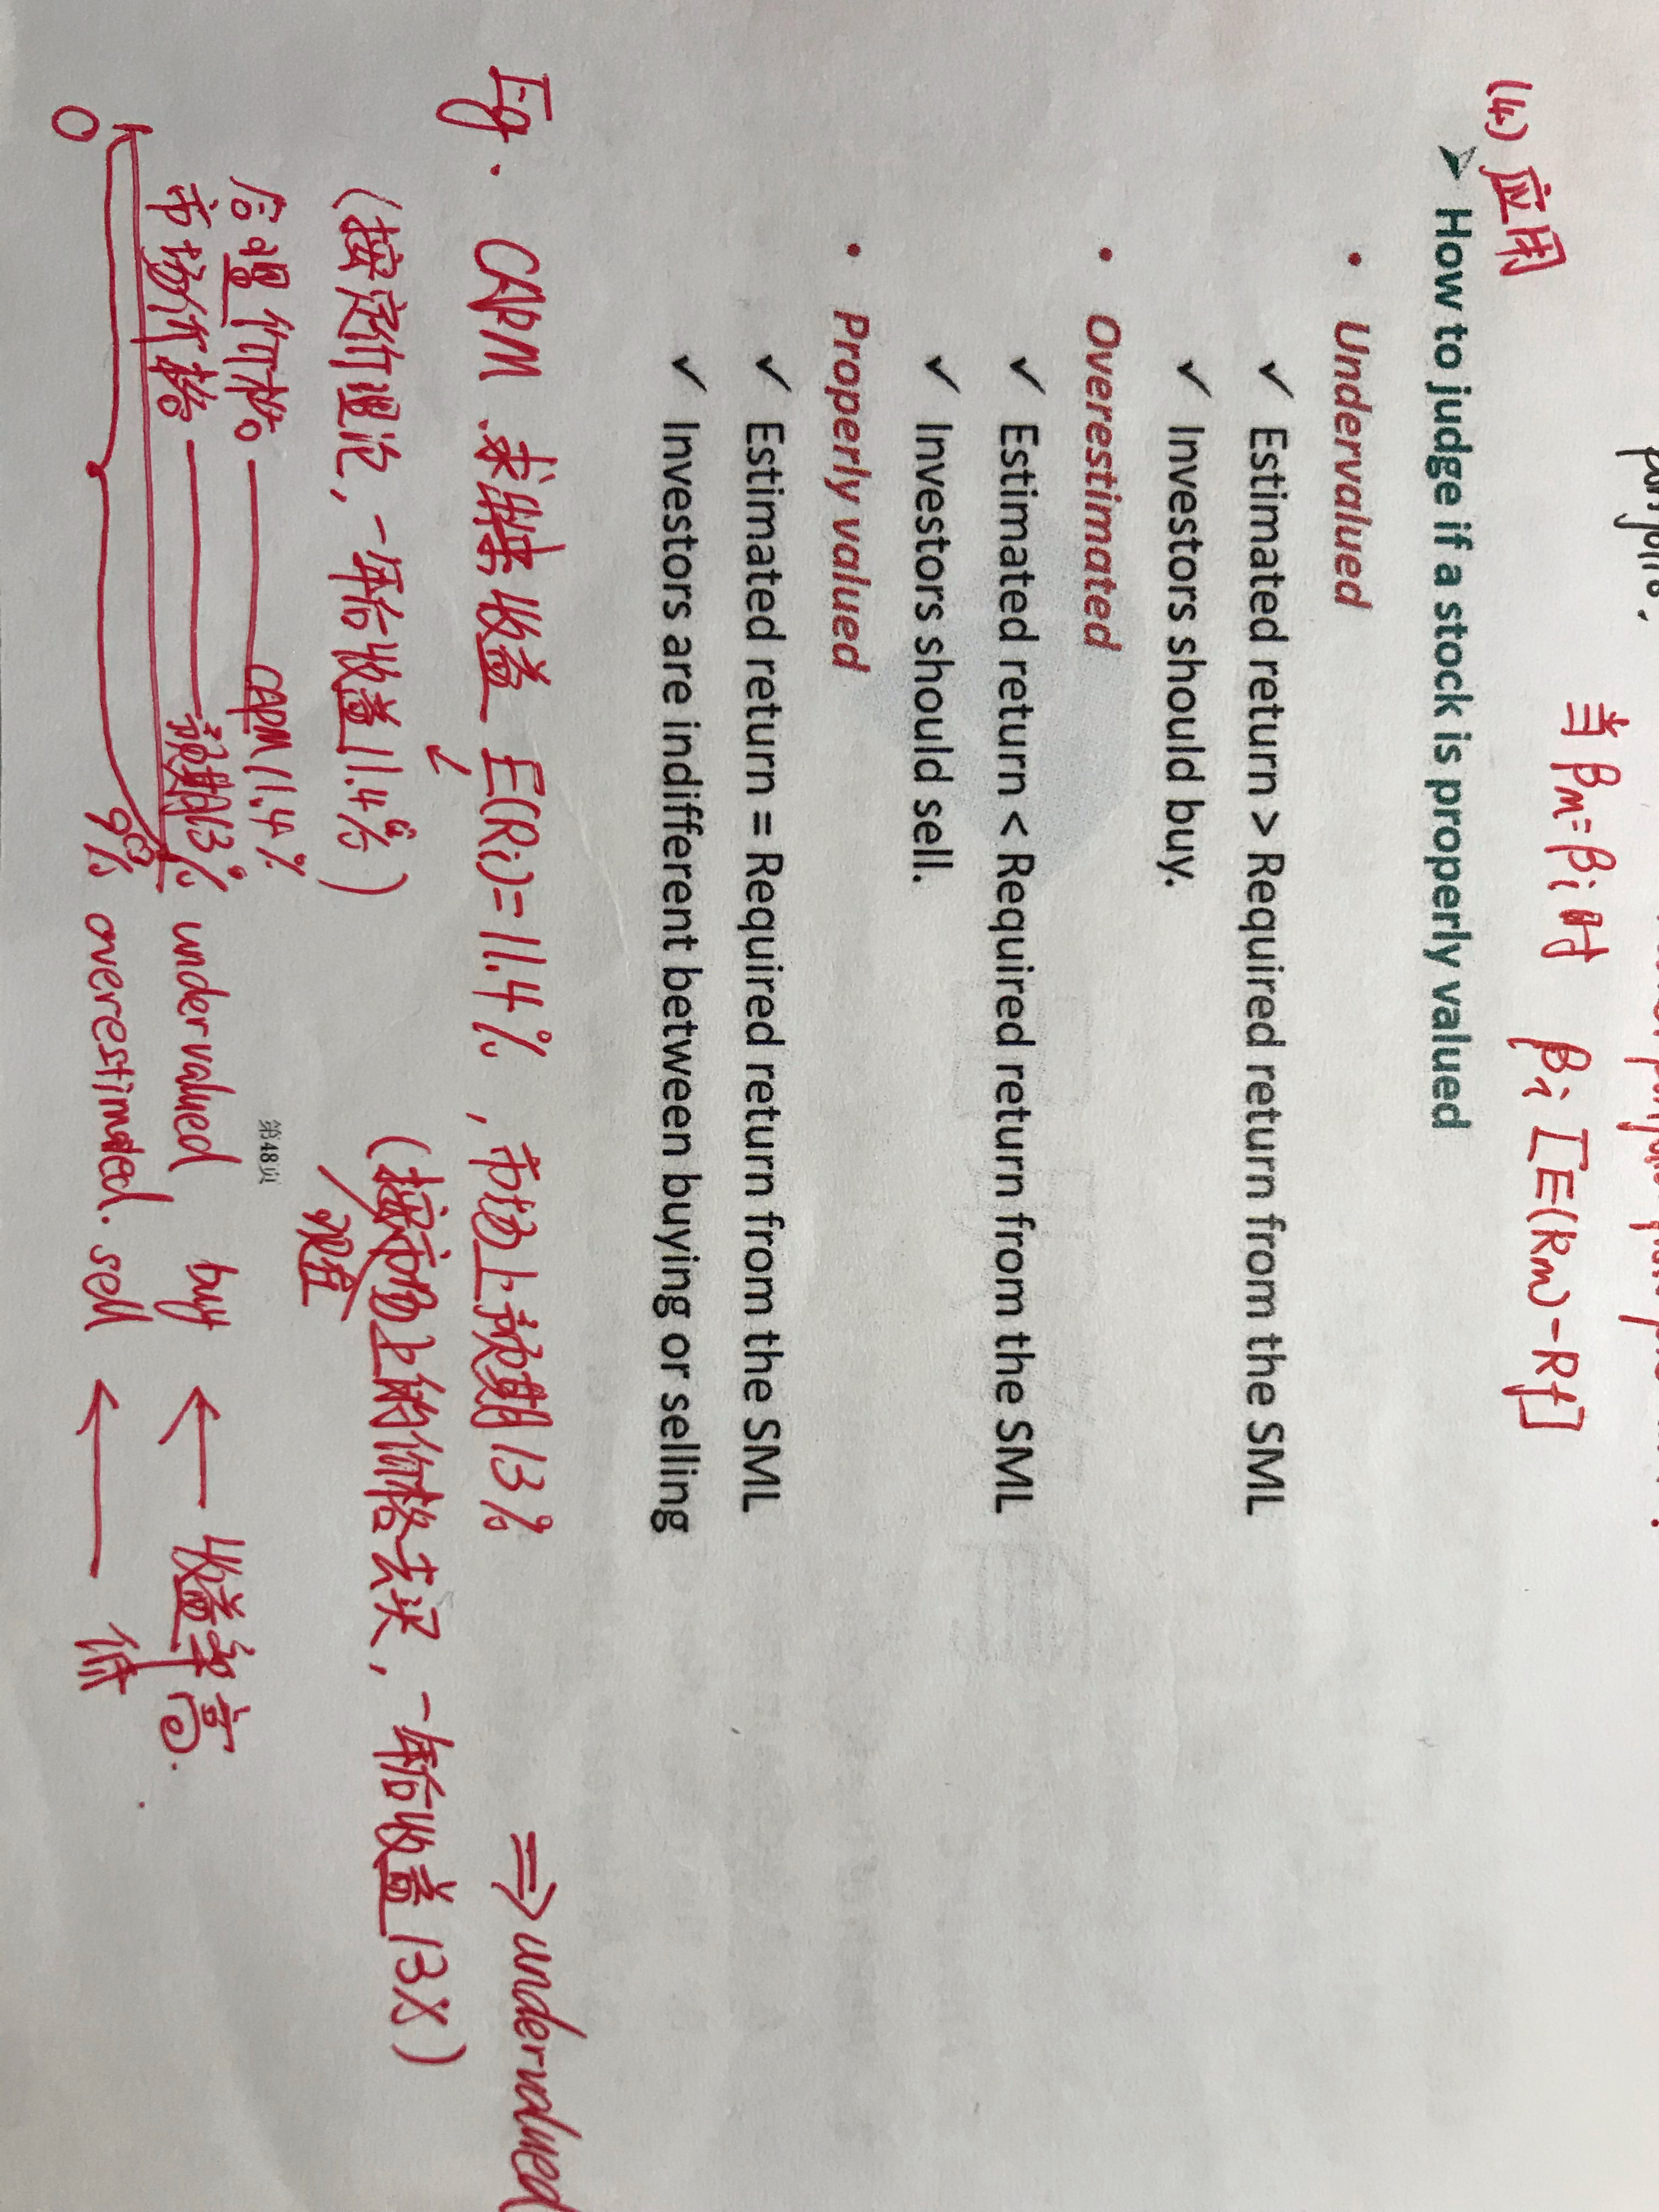 当βm=βi时 βi[E(Rm)-Rf]
(4) 应用
➢ How to judge if a stock is properly valued
• Undervalued
✓ Estimated return > Required return from the SML
✓ Investors should buy.
• Overestimated
✓ Estimated return < Required return from the SML
✓ Investors should sell.
• Properly valued
✓ Estimated return = Required return from the SML
✓ Investors are indifferent between buying or selling
Eg. CAPM 求出来收益 E(Ri)=11.4%, 市场上预期13% ⇒ undervalued
(按定价理论,一年后收益11.4%) (按市场上的价格去买,一年后收益13%)
现在
第48页
合理价格 —— CAPM 11.4%
市场价格 —— 预期13% undervalued buy ← 收益率高.
0 9% overestimated. sell ← 低